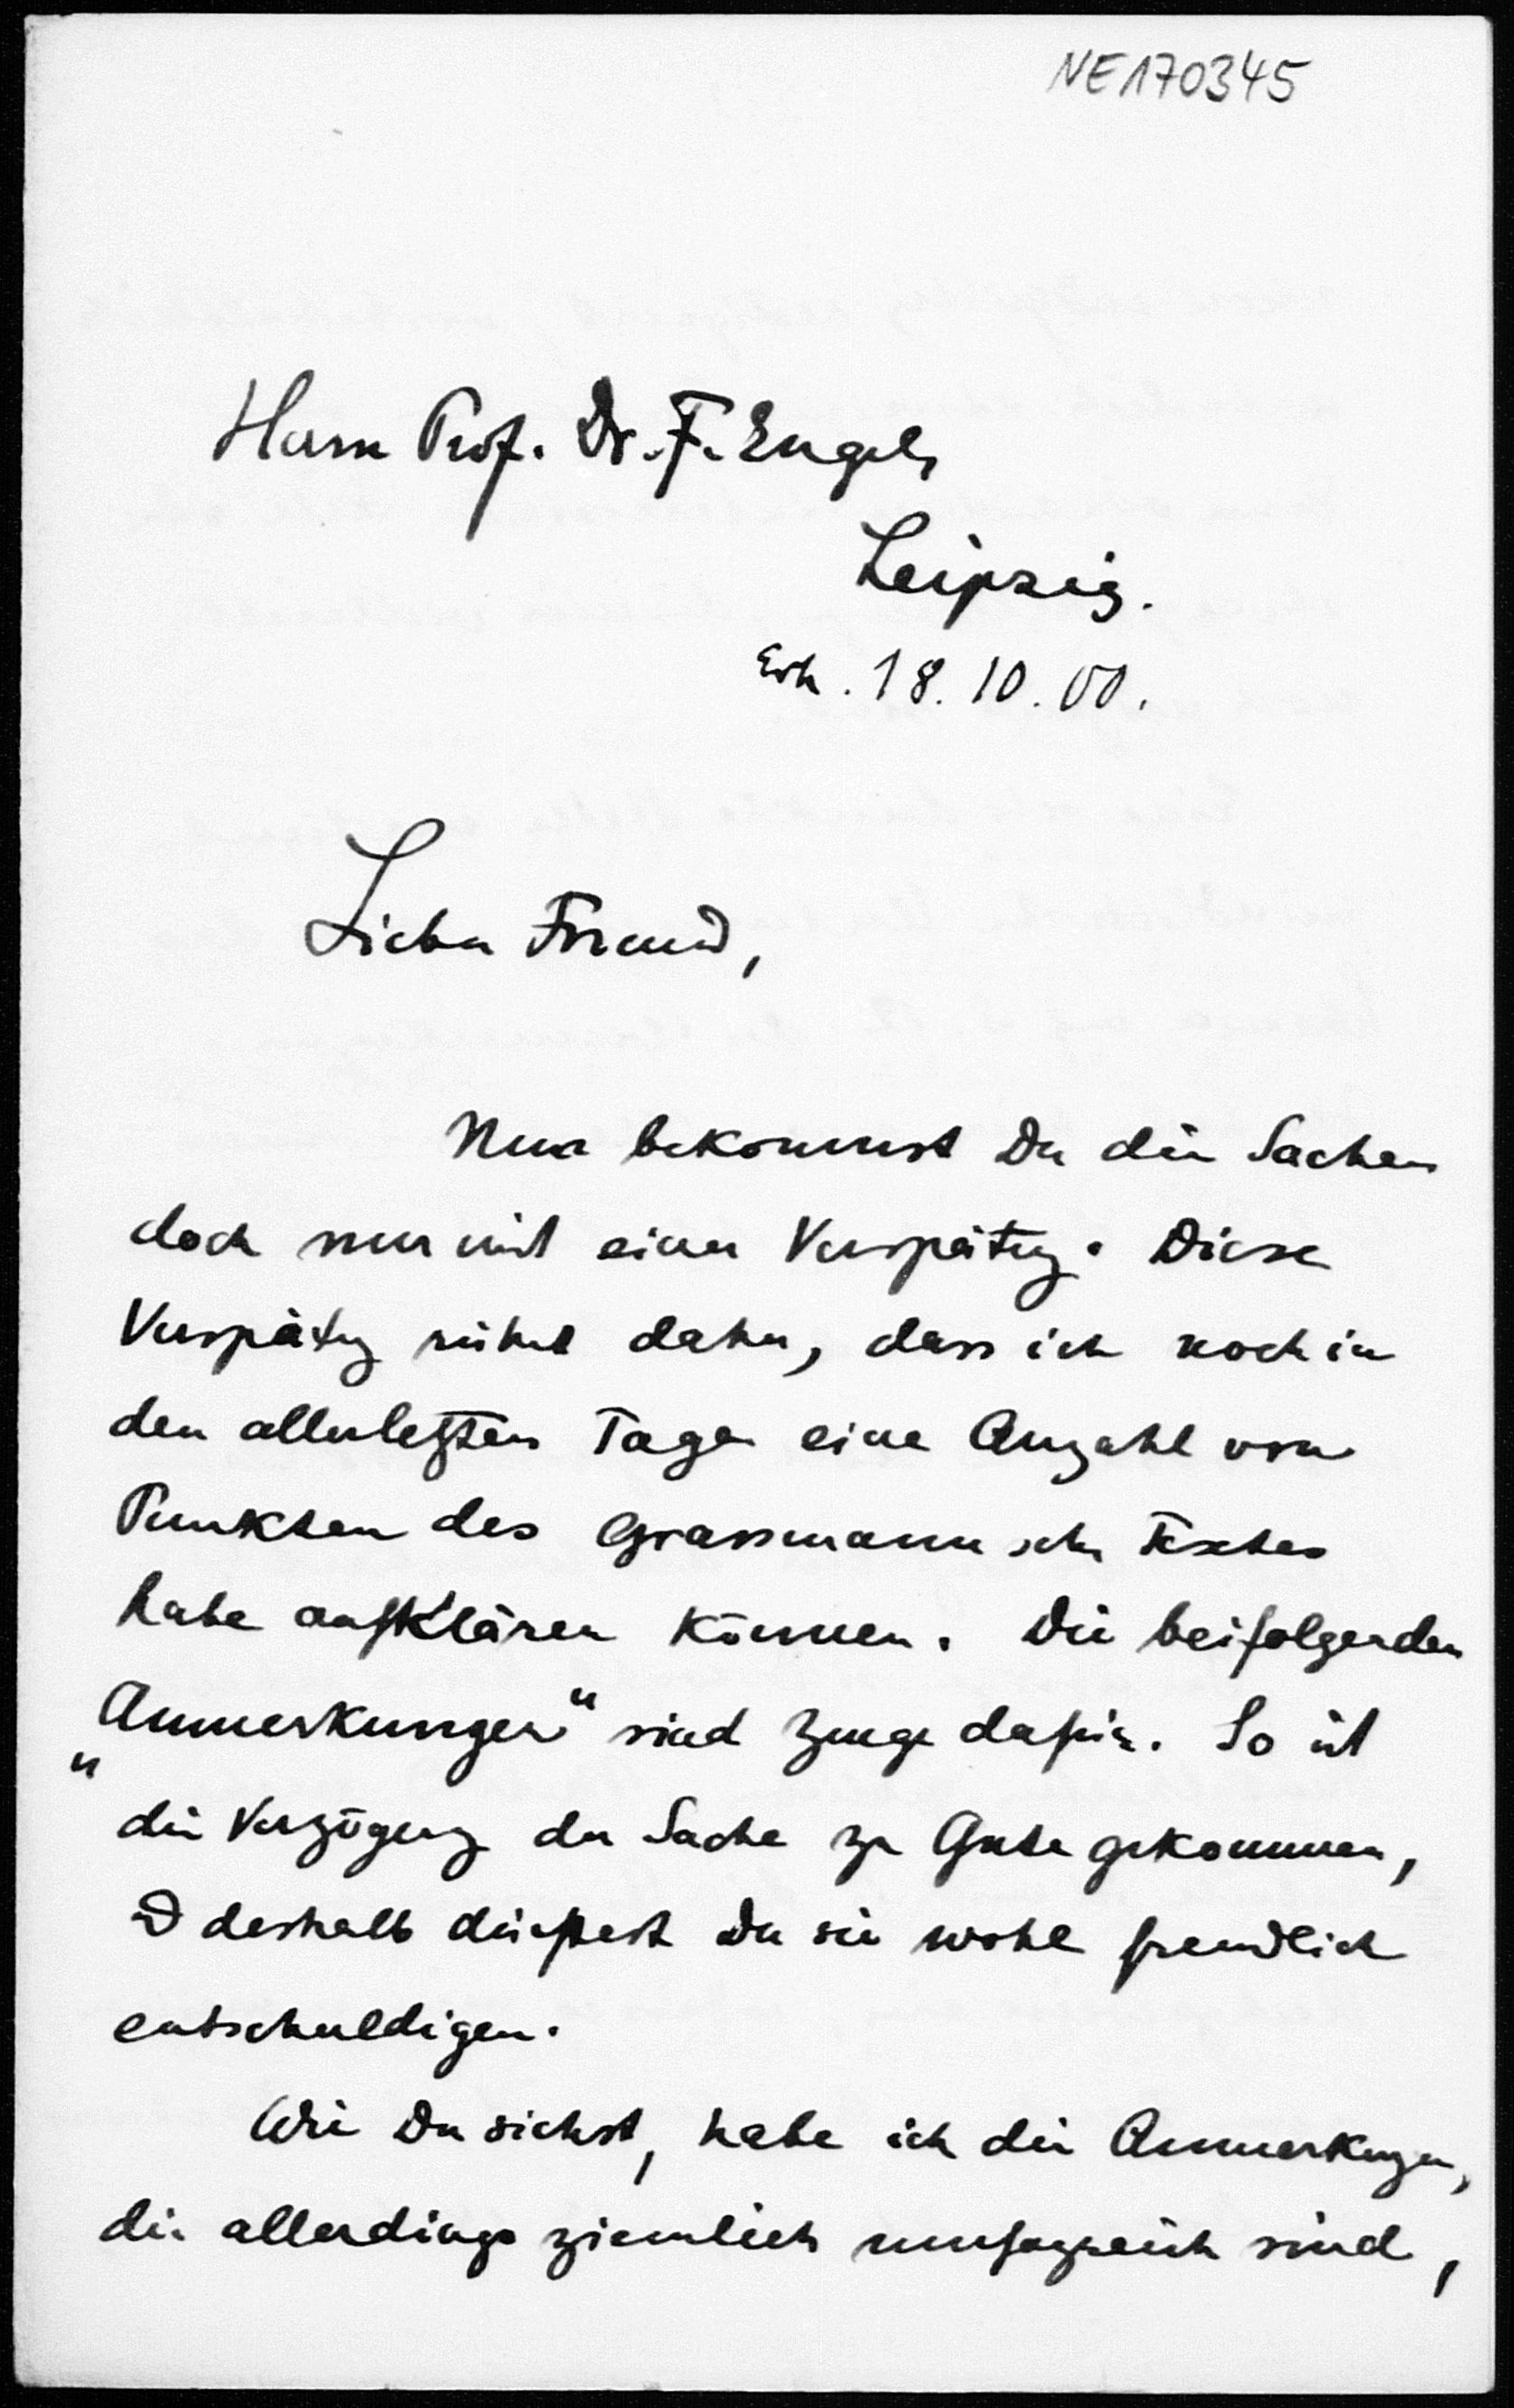 NE170345
Herrn Prof. Dr. F. Engel,
Leipzig.
Erh. 18. 10. 00.
Lieber Freund,
Nun bekommst Du die Sachen
doch nur mit einer Verspätung. Diese
Verspätung rührt daher, dass ich noch in
den allerletzten Tagen eine Anzahl von
Punkten des Grassmannschen Textes
habe aufklären können. Die beifolgenden
„Anmerkungen“ sind Zeuge dafür. So ist
die Verzögerung der Sache zu Gute gekommen,
und deshalb dürftest Du sie wohl freundlich
entschuldigen.
Wie Du siehst, habe ich die Anmerkungen,
die allerdings ziemlich umfangreich sind,